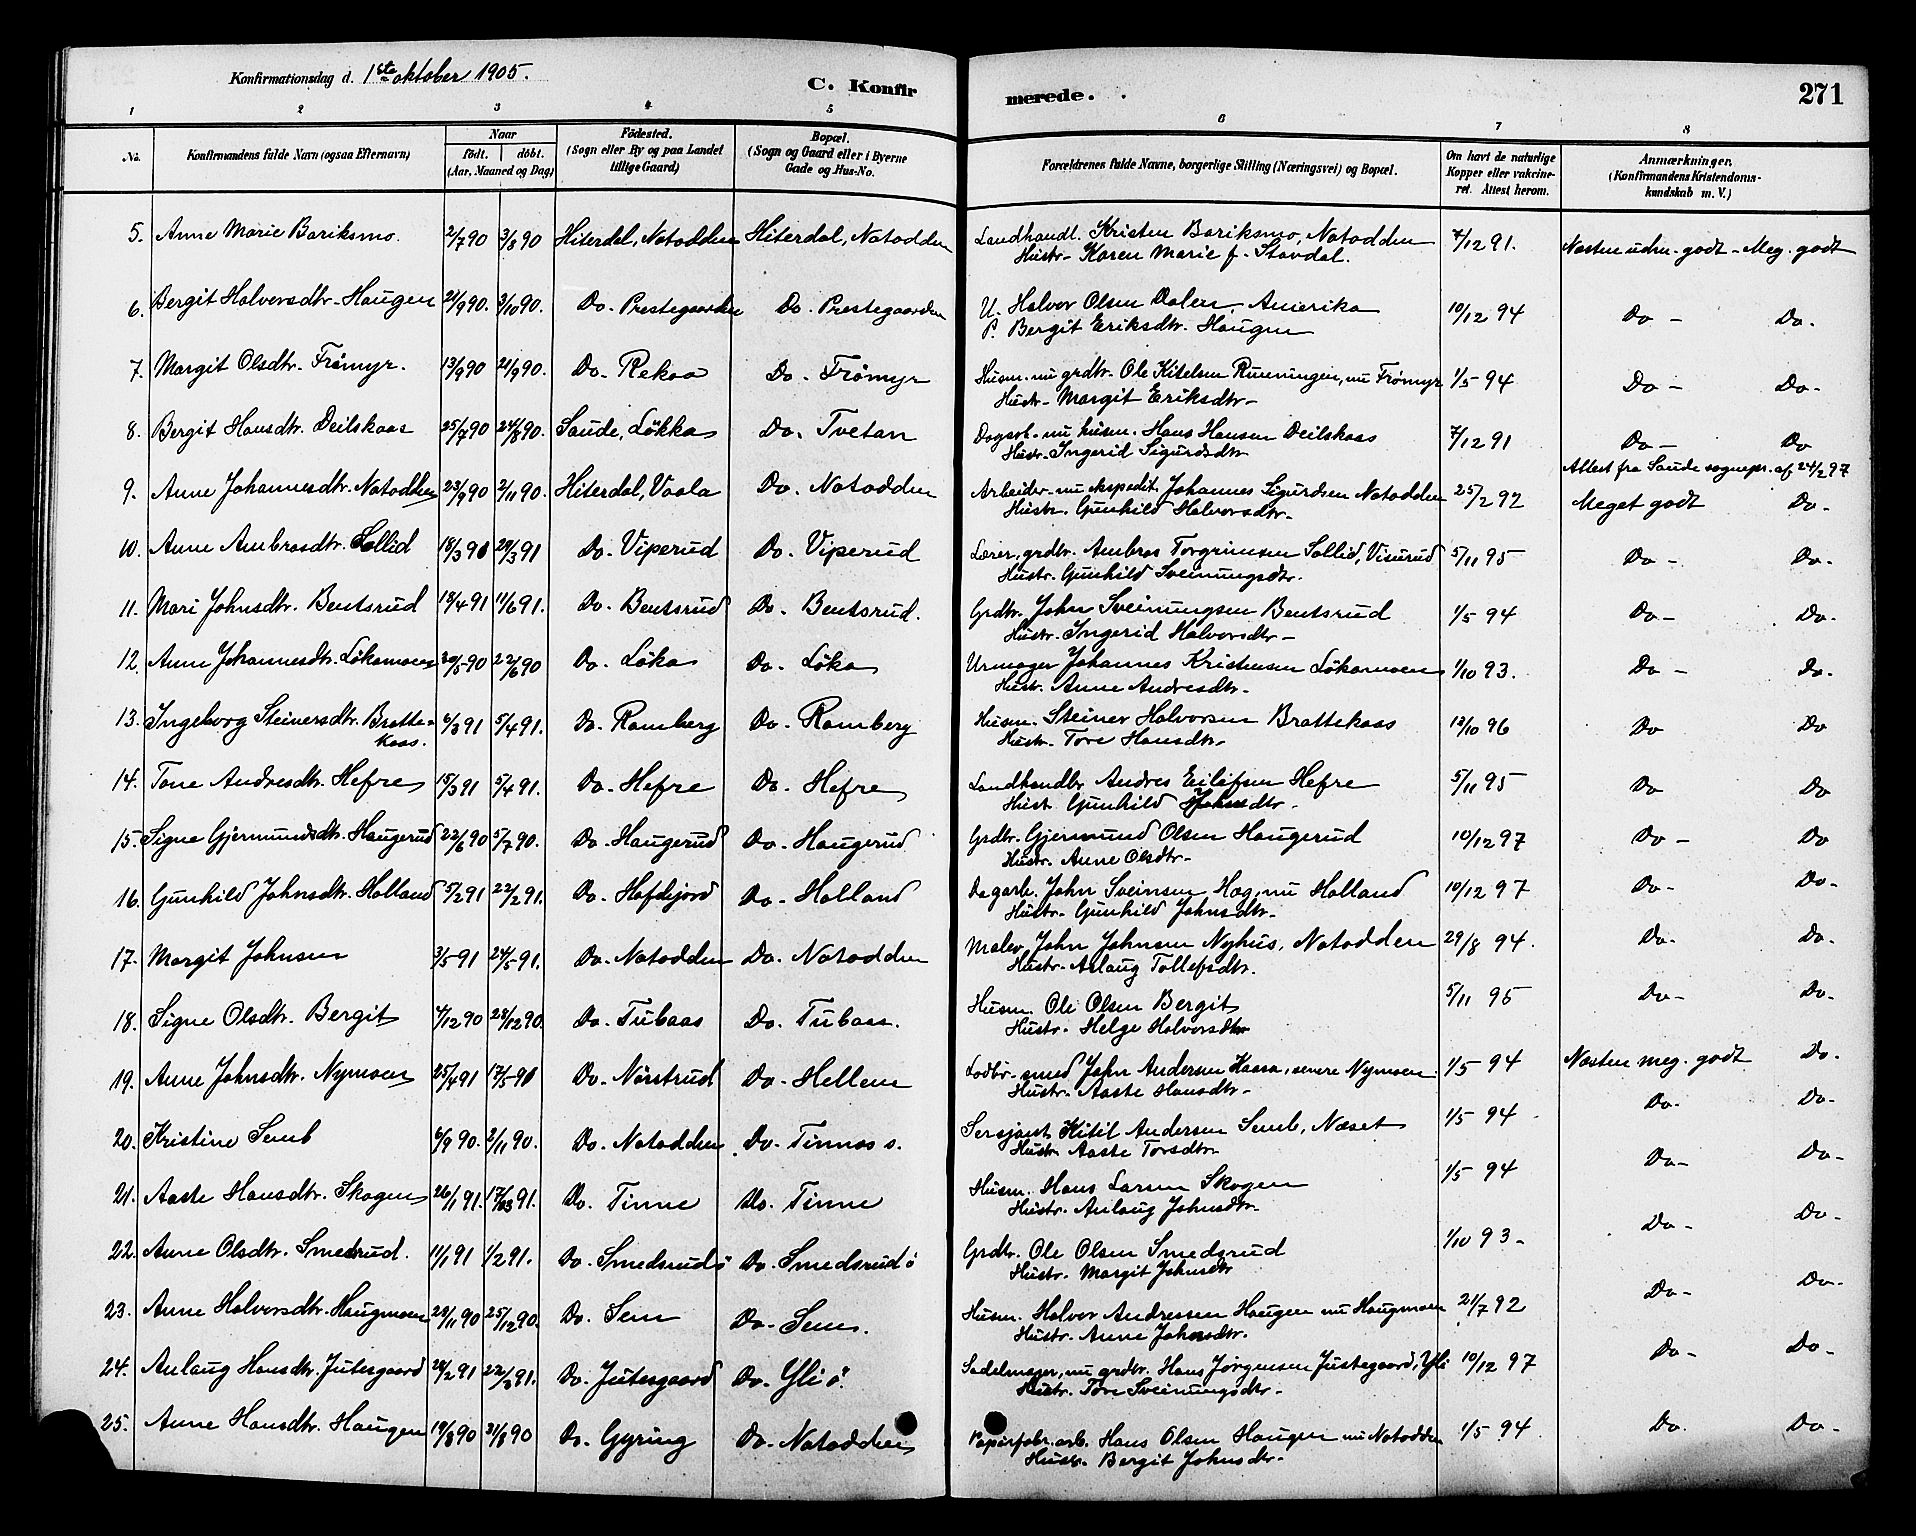 Konfirmationsdag d. 1ste oktober 1905.
C. Konfirmerede.
271
1 2 3 4 5 6 7 8
No. Konfirmandens fulde Navn (ogsaa Efternavn) Naar født. døbt. (Aar, Maaned og Dag) Fødested. (Sogn eller By og paa Landet tillige Gaard) Bopæl. (Sogn og Gaard eller i Byerne Gade og Hus-No. Forældrenes fulde Navne, borgerlige Stilling (Næringsvei) og Bopæl. Om havt de naturlige Kopper eller vakcineret. Attest herom. Anmærkninger. (Konfirmandens Kristendomskundskab m. V.)
5. Anne Marie Bariksmo. 2/7 90 3/8 90 Hiterdal, Notodden Hiterdal, Notodden Landhandl. Kristen Bariksmo, Notodden 7/12 91. Næsten udm. godt - Meg. godt
Hustr. Karen Marie f. Stavdal.
6. Bergit Halvorsdtr. Haugen 21/9 90. 3/10 90. Do. Prestegaarden Do. Prestegaarden U. Halvor Olsen Dalen, Amerika 10/12 94 Do - Do.
P. Bergit Eriksdtr. Haugen
7. Margit Olsdtr. Frømyr. 13/9 90 21/9 90. Do. Rekaa Do. Frømyr Husm. nu grdbr. Ole Kitelsen Rueningen, nu Frømyr 1/5 94 Do - Do -
Hustr. Margit Eriksdtr.
8. Bergit Hansdtr. Deilskaas 25/7 90 24/8 90. Saude, Løkka Do. Tvetan Dagarb. nu husm. Hans Hansen Deilskaas 7/12 91 Do - Do
Hustr. Ingerid Sigurdsdtr. Attest fra Saude sognepr. af 24/2 97
9. Anne Johannesdtr. Notodden 23/9 90 2/11 90. Hiterdal, Vaala Do. Notodden Arbeider nu ekspedit. Johannes Sigurdsen Notodden 25/2 92 Meget godt Do.
Hustr. Gunhild Halvorsdtr.
10. Anne Ambrosdtr. Sollid 18/3 91 29/3 91 Do. Viperud Do. Viperud Lærer, grdbr. Ambros Torgrimsen Sollid, Visurud 5/11 95 Do - Do.
Hustr. Gunhild Sveinungsdtr.
11. Mari Johnsdtr. Bentsrud 18/4 91 11/6 91. Do. Bentsrud Do. Bentsrud. Grdbr. John Sveinungsen Bentsrud 1/5 94 Do - Do.
Hustr. Ingerid Halvorsdtr.
12. Anne Johannesdtr. Løkamoen 30/5 90 22/6 90 Do. Løka Do. Løka Urmager Johannes Kristensen Løkamoen 1/10 93. Do - Do.
Hustr. Anne Andresdtr.
13. Ingeborg Steinersdtr. Brattekaas. 6/3 91 5/4 91. Do. Ramberg Do. Ramberg Husm. Steiner Halvorsen Brattekaas 12/10 96 Do Do
Hustr. Tore Hansdtr.
14. Tone Andresdtr. Hefre 15/3 91 5/4 91. Do. Hefre Do. Hefre Landhandler Andres Eilifsen Hefre 5/11 95 Do Do
Hustr. Gunhild Johnsdtr.
15. Signe Gjermundsdtr. Haugerud 22/6 90 5/7 90. Do. Haugerud Do. Haugerud Grdbr. Gjermund Olsen Haugerud 10/12 97 Do - Do
Hustr. Anne Olsdtr.
16. Gunhild Johnsdtr. Holland 5/2 91 22/2 91. Do. Hafdejord Do. Holland Dagarb. John Sveinsen Hag, nu Holland 10/12 97 Do - Do.
Hustr. Gunhild Johnsdtr.
17. Margit Johnsen 3/5 91 24/5 91. Do. Notodden Do. Notodden Maler John Johnsen Nyhus, Notodden 29/8 94. Do. Do.
Hustr. Aslaug Tollefsdtr.
18. Signe Olsdtr. Bergit 4/12 90 28/12 90. Do. Tubaas Do. Tubaas. Husm. Ole Olsen Bergit 5/11 95 Do - Do.
Hustr. Helge Halvorsdtr.
19. Anne Johnsdtr. Nymoen 25/4 91 17/5 91 Do. Nørstrud Do. Hellem Lodbr. smed John Andersen Kaasa, senere Nymoen 1/5 94 Næsten meg. godt Do.
Hustr. Aaste Hansdtr.
20. Kristine Semb 6/9 90. 2/11 90. Do. Notodden Do. Tinnes s. Sersjant Kitil Andersen Semb, Næset 1/5 94 Do. Do -
Hustr. Aaste Torsdtr.
21. Aaste Hansdtr. Skogen 26/1 91. 17/3 91. Do. Tinne Do. Tinne Husm. Hans Larsen Skogen 1/5 94 Do - Do -
Hustr. Anlaug Johnsdtr.
22. Anne Olsdtr. Smedsrud. 11/1 91 1/2 91. Do. Smedsrud ø Do. Smedsrud ø Grdbr. Ole Olsen Smedsrud 1/10 93. Do - Do -
Hustr. Margit Johnsdtr
23. Anne Halvorsdtr. Haugmoen 28/11 90 25/12 90. Do. Sem Do. Sem. Husm. Halvor Andresen Haugen nu Haugmoen 21/7 92 Do - Do -
Hustr. Anne Johnsdtr.
24. Anlaug Hansdtr. Jutesgaard 28/2 91 22/3 91. Do. Jutesgaard Do. Yli ø. Sadelmager, nu grdbr. Hans Jørgensen Justegaard, Yli 10/12 97 Do - Do -
Hustr. Tore Sveinungsdtr.
25. Anne Hansdtr. Haugen 19/8 90 31/8 90 Do. Gyring Do. Notodden Papirfabr.arb. Hans Olsen Haugen nu Notodden 1/5 94 Do. Do -
Hustr. Bergit Johnsdtr.